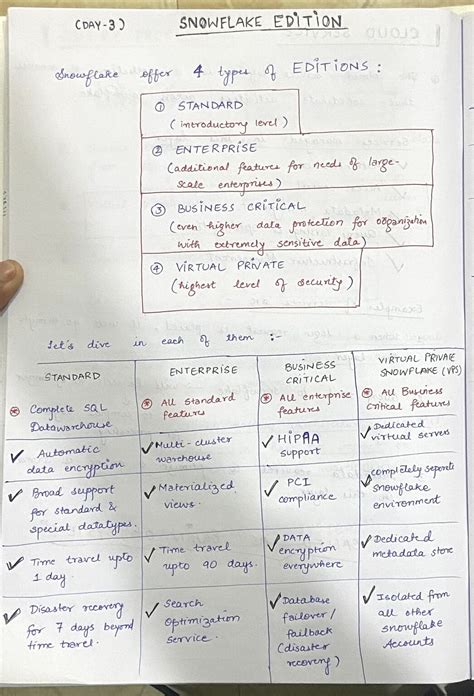 (DAY-3)
SNOWFLAKE EDITION
Snowflake offer 4 types of EDITIONS :
① STANDARD
(introductory level)
② ENTERPRISE
(additional features for needs of large-
scale enterprises)
③ BUSINESS CRITICAL
(even higher data protection for organization
with extremely sensitive data)
④ VIRTUAL PRIVATE
(highest level of security)
Let's dive in each of them :-
STANDARD
Complete SQL
Datawarehouse
Automatic
data encryption
Broad support
for standard &
special datatypes.
Time travel upto
1 day.
Disaster recovery
for 7 days beyond
time travel.
ENTERPRISE
All standard
features
Multi-cluster
warehouse
Materialized
views.
Time travel
upto 90 days.
Search
Optimization
service.
BUSINESS
CRITICAL
All enterprise
features
HIPAA
support
PCI
compliance
DATA
encryption
everywhere
Database
failover /
failback
(disaster
recovery)
VIRTUAL PRIVAE
SNOWFLAKE (VPS)
All Business
Critical features
Dedicated
virtual servers
completely seperate
snowflake
environment
Dedicated
metadata store
Isolated from
all other
snowflake
Accounts